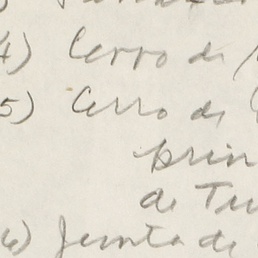 4) Cerro de
5) Cerro de
prin
de Tu
6) Junta de